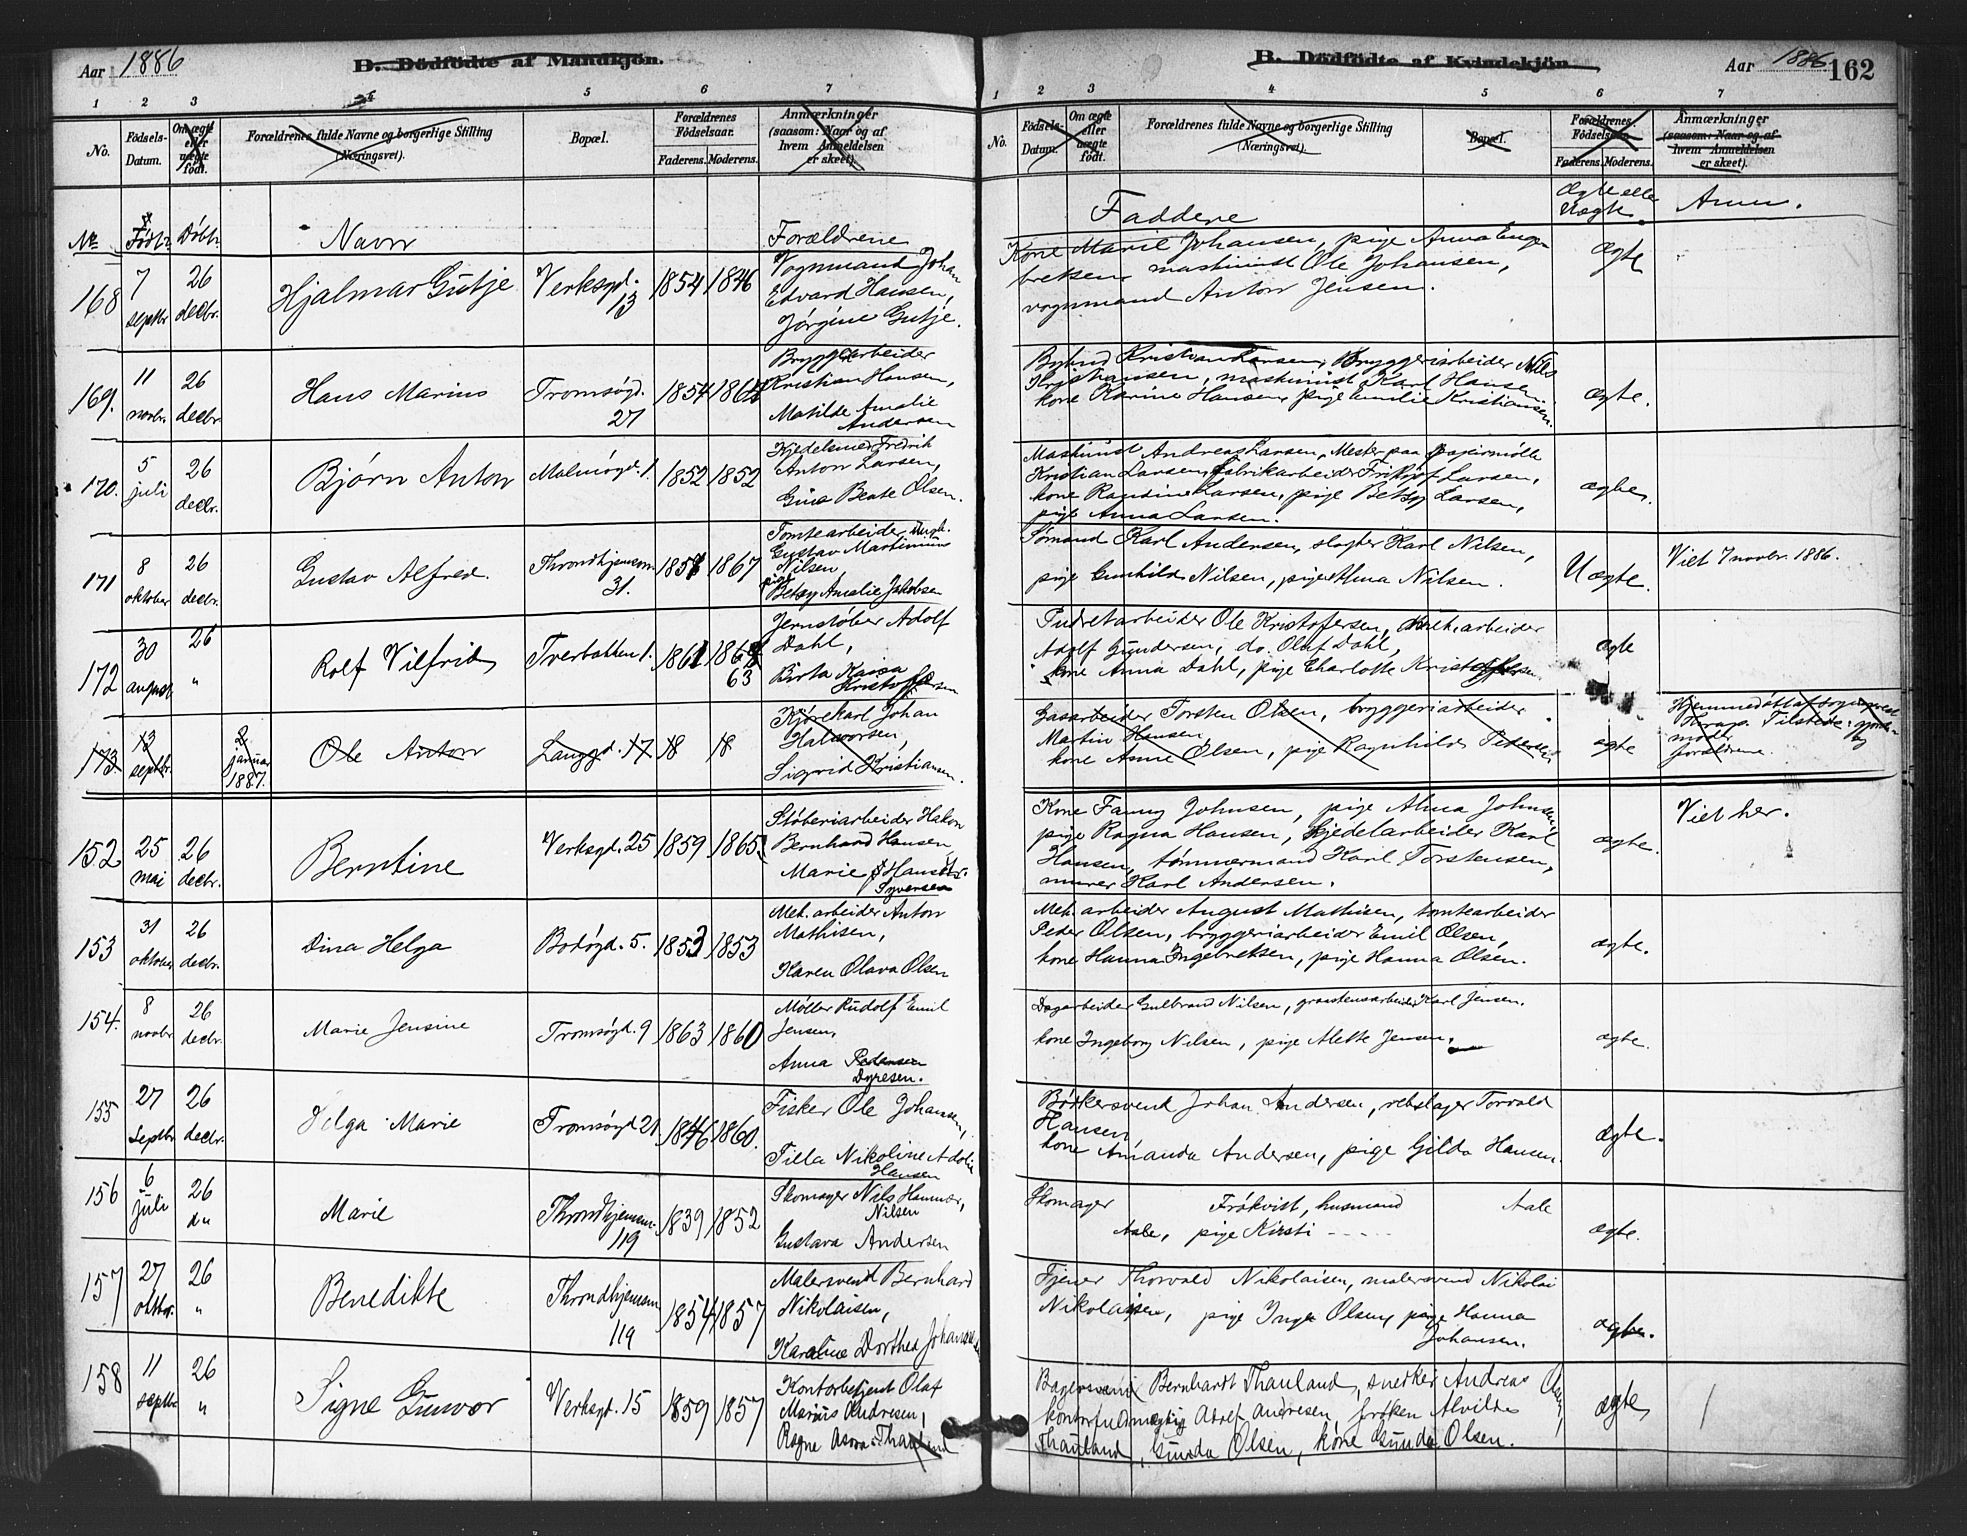 Aar 1886
D. Dödfödte af Mandkjön.
1 2 3 4 5 6 7
No.
Födsels-Datum.
Om ægte eller uægte födt.
Forældrenes fulde Navne og borgerlige Stilling (Næringsvei).
Bopæl.
Forældrenes Födselsaar.
Faderens. Moderens.
Anmærkninger (saasom: Naar og af hvem Anmeldelsen er skeet).
B. Dödfödte af Kvindekjön.
Aar 1886 162
1 2 3 4 5 6 7
No.
Födsels-Datum.
Om ægte eller uægte födt.
Forældrenes fulde Navne og borgerlige Stilling (Næringsvei).
Bopæl.
Forældrenes Födselsaar.
Faderens. Moderens.
Anmærkninger (saasom: Naar og af hvem Anmeldelsen er skeet).
No Født Døbt Navn Forældrene
Faddere
Ægte elle Uægte
Anm.
168 7 septbr. 26 decbr. Hjalmar Gutje Verksgd. 13 1854 1846
Vognmand Johan
Edvard Hansen,
Jørgine Gutje.
Kone Marie Johansen, pige Anna Enge-
bretsen, maskinist Ole Johansen,
vognmand Anton Jensen.
ægte
169. 11 novbr. 26 decbr. Hans Marius Tromsøgd. 27 1854
Kristian Hansen,
Matilde Amalie
Andersen
Kristian Larsen, Bryggeriarbeider Nils
Kristiansen, maskinist Karl Hansen
kone Karine Hansen, pige Emilie Kristiansen.
ægte.
170. 5 juli 26 decbr. Bjørn Anton Malmøgd. 1. 1852 1852
Kjedelsmed Fredrik
Anton Larsen,
Gina Beate Olsen.
Maskinist Andreas Larsen, Mester paa Papirmølle
Kristian Larsen, Fabrikarbeider Fritjof Larsen,
kone Randine Larsen, pige Betsy Larsen,
pige Anna Larsen.
ægte.
171 8 oktober 26 decbr. Gustav Alfred. Throndhjemsv. 31. 1867
Tomtearbeider
Gustav Martinius
Nilsen,
pige
Betsy Amalie Jakobsen
Sømand Karl Andersen, slagter Karl Nilsen,
pige Gunhilda Nilsen, pige Alma Nilsen.
Uægte.
Viet 7 novbr. 1886.
172 30 august 26 " Rolf Vilfrid Tverbakken 1. 1861 63
Jernstøber Adolf
Dahl,
Kristoffersen
Pudretarbeider Ole Kristofersen, arbeider
Adolf Gundersen, do. Olaf Dahl,
kone Anna Dahl, pige Charlotte Kristoffersen.
ægte
173 13 septbr. 2 januar 1887. Ole Anton Langgd. 17 18 18
Kjørekarl Johan
Halvorsen,
Sigrid Kristiansen.
Gasarbeider Torsten Olsen, bryggeriarbeider
Martin Hansen
kone Anne Olsen, pige Ragnhild Pedersen
ægte
Hjemmedøbt af
forældrene.
152 25 mai 26 decbr. Berntine Verksgd. 25 1859 1865
Støberiarbeider Hakon
Bernhard Hansen
Marie
Syversen
Kone Fanny Johnsen, pige Alma Johnsen,
pige Ragna Hansen, kjedelarbeider Karl
Hansen, tømmermand Karl Torstensen,
murer Karl Andersen.
ægte.
Viet her.
153 31 oktober 26 decbr. Dina Helga Bodøgd. 5. 1853 1853
Mek. arbeider Anton
Mathisen,
Karen Olava Olsen
Mek. arbeider August Mathisen, tomtearbeider
Peder Olsen, bryggeriarbeider Emil Olsen,
kone Hanna Ingebretsen, pige Hanna Olsen.
ægte.
154. 8 novbr. 26 decbr. Marie Jensine Tromsøgd. 9 1863 1860
Møller Rudolf Emil
Jensen,
Anna Pedersen
Dyresen.
Dagarbeider Gulbrand Nilsen, Karl Jensen.
kone Ingeborg Nilsen, pige Alette Jensen.
ægte.
155 27 Septbr. 26 decbr. Helga Marie Tromsøgd. 21 1846 1860.
Fisker Ole Johansen,
Tilla Nikoline
Hansen
Bødkersvend Johan Andersen, rebslager Torvald
Hansen
kone Amanda Andersen, pige Gilda Hansen.
ægte.
156 6 juli 26 Marie Throndhjemsv. 119 1839 1852
Skomager Nils Hammer,
Nilsen
Gustava Andersen
Skomager Frökvist, husmand Aale
Aale, pige Kirsti - - - -
ægte.
157 27 oktbr. 26 " Benedikte Throndhjemsv. 119 1854 1857
Malersvend Bernhard
Nikolaisen,
Karoline Dorthea Johansen
Tjener Thorvald Nikolaisen, malersvend Nikolai
Nikolaisen, pige Inga Olsen, pige Hanna
Johansen.
ægte.
158 11 septbr. 26 " Signe Gunvor Verksgd. 15 1859 1857
Kontorbetjent Olaf
Marius Andresen,
Ragna
Bagersvend Bernhardt Thauland, snedker Andreas Olsen,
kontorfuldmægtig Adolf Andresen, frøken Alvilde
Thauland, Gunda Olsen, kone Gunda Olsen.
ægte